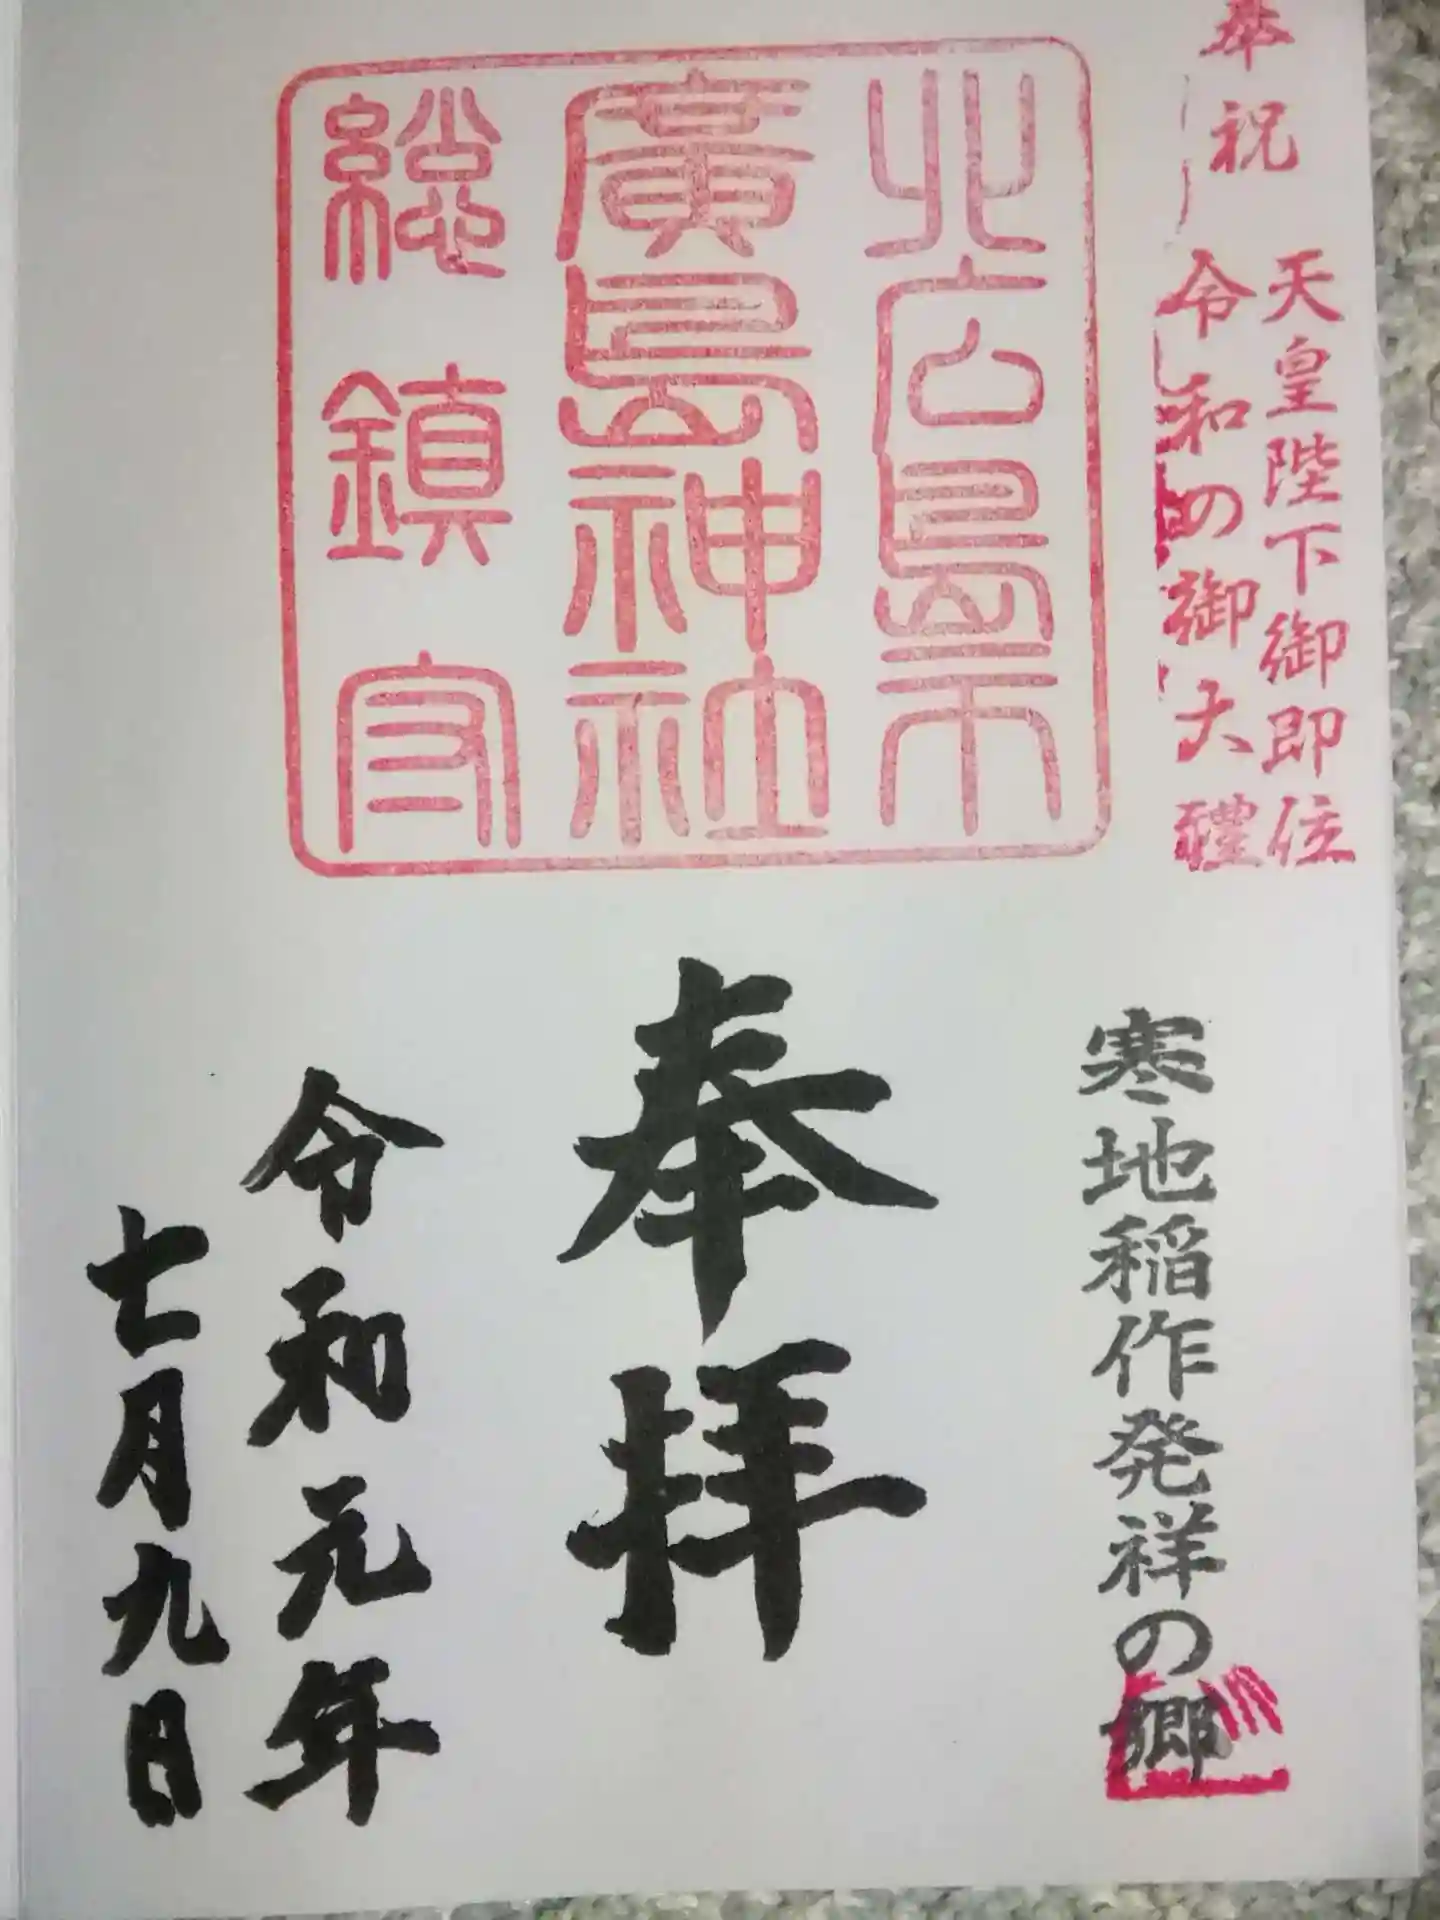 奉祝
天皇陛下御即位
令和の御大禮
北広島市
廣島神社
総鎮守
寒地稲作発祥の郷
奉拝
令和元年
七月九日